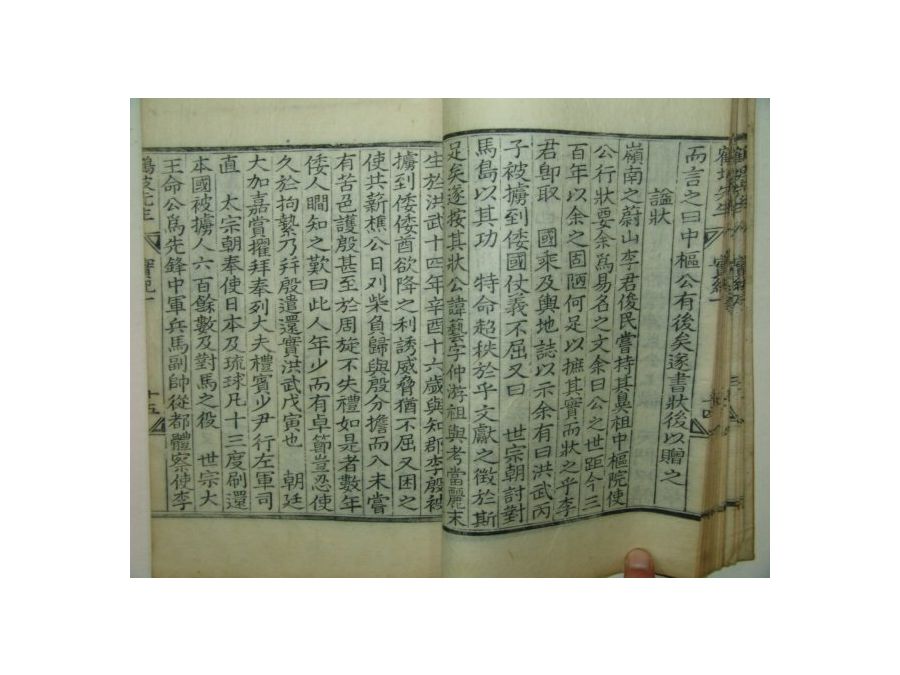 而言之曰中樞公有後矣遂書狀後以贈之
謚狀
嶺南之蔚山李君俊民嘗持其奐祖中樞院使
公行狀要余爲易名之文余曰公之世距今三
百年以余之固陋何足以摭其實而狀之乎李
君卽取 國乘及輿地誌以示余有曰洪武丙
子被擄到倭國仗義不屈又曰 世宗朝討對
馬島以其功 特命超秩於乎文獻之徵於斯
足矣遂按其狀公諱藝字仲游祖與考當麗末
生於洪武十四年辛酉十六歲與知郡李殷被
擄到倭倭酋欲降之利誘威脅猶不屈又困之
使共薪樵公日刈柴負歸與殷分擔而入未嘗
有苦色護殷甚至於周旋不失禮如是者數年
倭人瞷知之歎曰此人年少而有卓節豈忍使
久於拘縶乃幷殷遣還實洪武戊寅也 朝廷
大加嘉賞擢拜奉列大夫禮賓少尹行左軍司
直 太宗朝奉使日本及琉球凡十三度刷還
本國被擄人六百餘數及對馬之役 世宗大
王命公爲先鋒中軍兵馬副帥從都體察使李
鶴坡先生 實紀一 十五